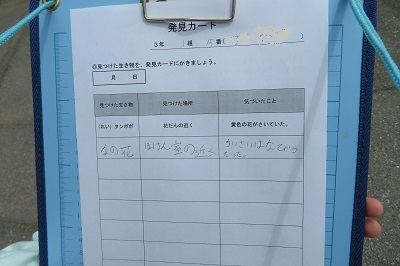 発見カード
3年 組 番(
◎見つけた生き物を、発見カードにかきましょう。
月 日
見つけた生き物 見つけた場所 気づいたこと
(れい) タンポポ 花だんの近く 黄色の花がさいていた。
なの花 ほけん室の近く ちいさいはなびら
だった。